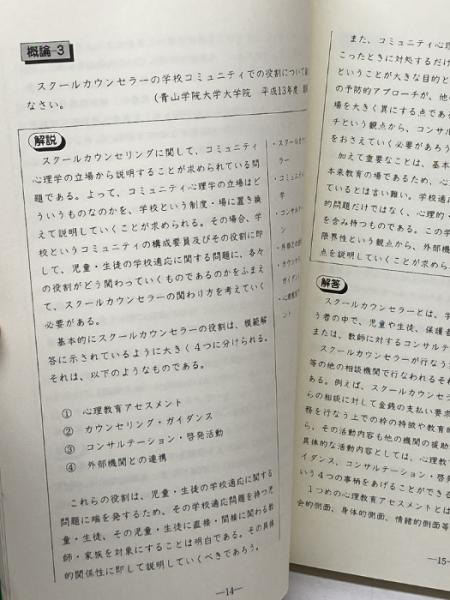 概論-3
スクールカウンセラーの学校コミュニティでの役割について
なさい。
(青山学院大学大学院 平成13年度
解説
スクールカウンセリングに関して、コミュニティ
心理学の立場から説明することが求められている問
題である。よって、コミュニティ心理学の立場はど
ういうものなのかを、学校という制度・場に置き換
えて説明していくことが求められる。その場合、学
校というコミュニティの構成要員及びその役割に即
して、児童・生徒の学校適応に関する問題に、各々
の役割がどう関わっていくものであるのかをふまえ
て、スクールカウンセラーの関わり方を考えていく
必要がある。
基本的にスクールカウンセラーの役割は、模範解
答に示されているように大きく4つに分けられる。
それは、以下のようなものである。
① 心理教育アセスメント
② カウンセリング・ガイダンス
③ コンサルテーション・啓発活動
④ 外部機関との連携
これらの役割は、児童・生徒の学校適応に関する
問題に端を発するため、その学校適応問題を持つ児
童・生徒、その児童・生徒に直接・間接に関わる教
師・家族を対象にすることは明白である。その具体
的関係性に即して説明していくべきであろう。
―14―
・スクール
ラー
・コミュニ
学
・コンサル
ン
・外部
・カウンセ
ガイダン
・心理教
ント
また、コミュニティ心理
こったときに対処するだけ
ということが大きな目的と
の予防的アプローチが、他
場を大きく異にする点であ
チという観点から、コンサル
をおさえていく必要があろう
加えて重要なことは、基本
本来教育の場であるため、心
ているとは言い難い。学校適
的問題だけではなく、心理的・
を含み持つものである。この学
限界性という観点から、外部機
点を説明していくことが求めら
解答
スクールカウンセラーとは、学
う者の中で、児童や生徒、保護者
または、教師に対するコンサルテ
スクールカウンセラーが行なう
等の他の相談機関で行なわれるそ
ある。例えば、スクールカウンセ
らの相談に対して金銭の支払い要求
務を行なう上での枠の特徴や教育
ら、その活動内容も他の機関の援助
具体的な活動内容としては、心理教
イダンス、コンサルテーション・啓発
いう4つの事柄をあげることができる
1つめの心理教育アセスメントとは
会的側面、身体的側面、情緒的側面等
―15―